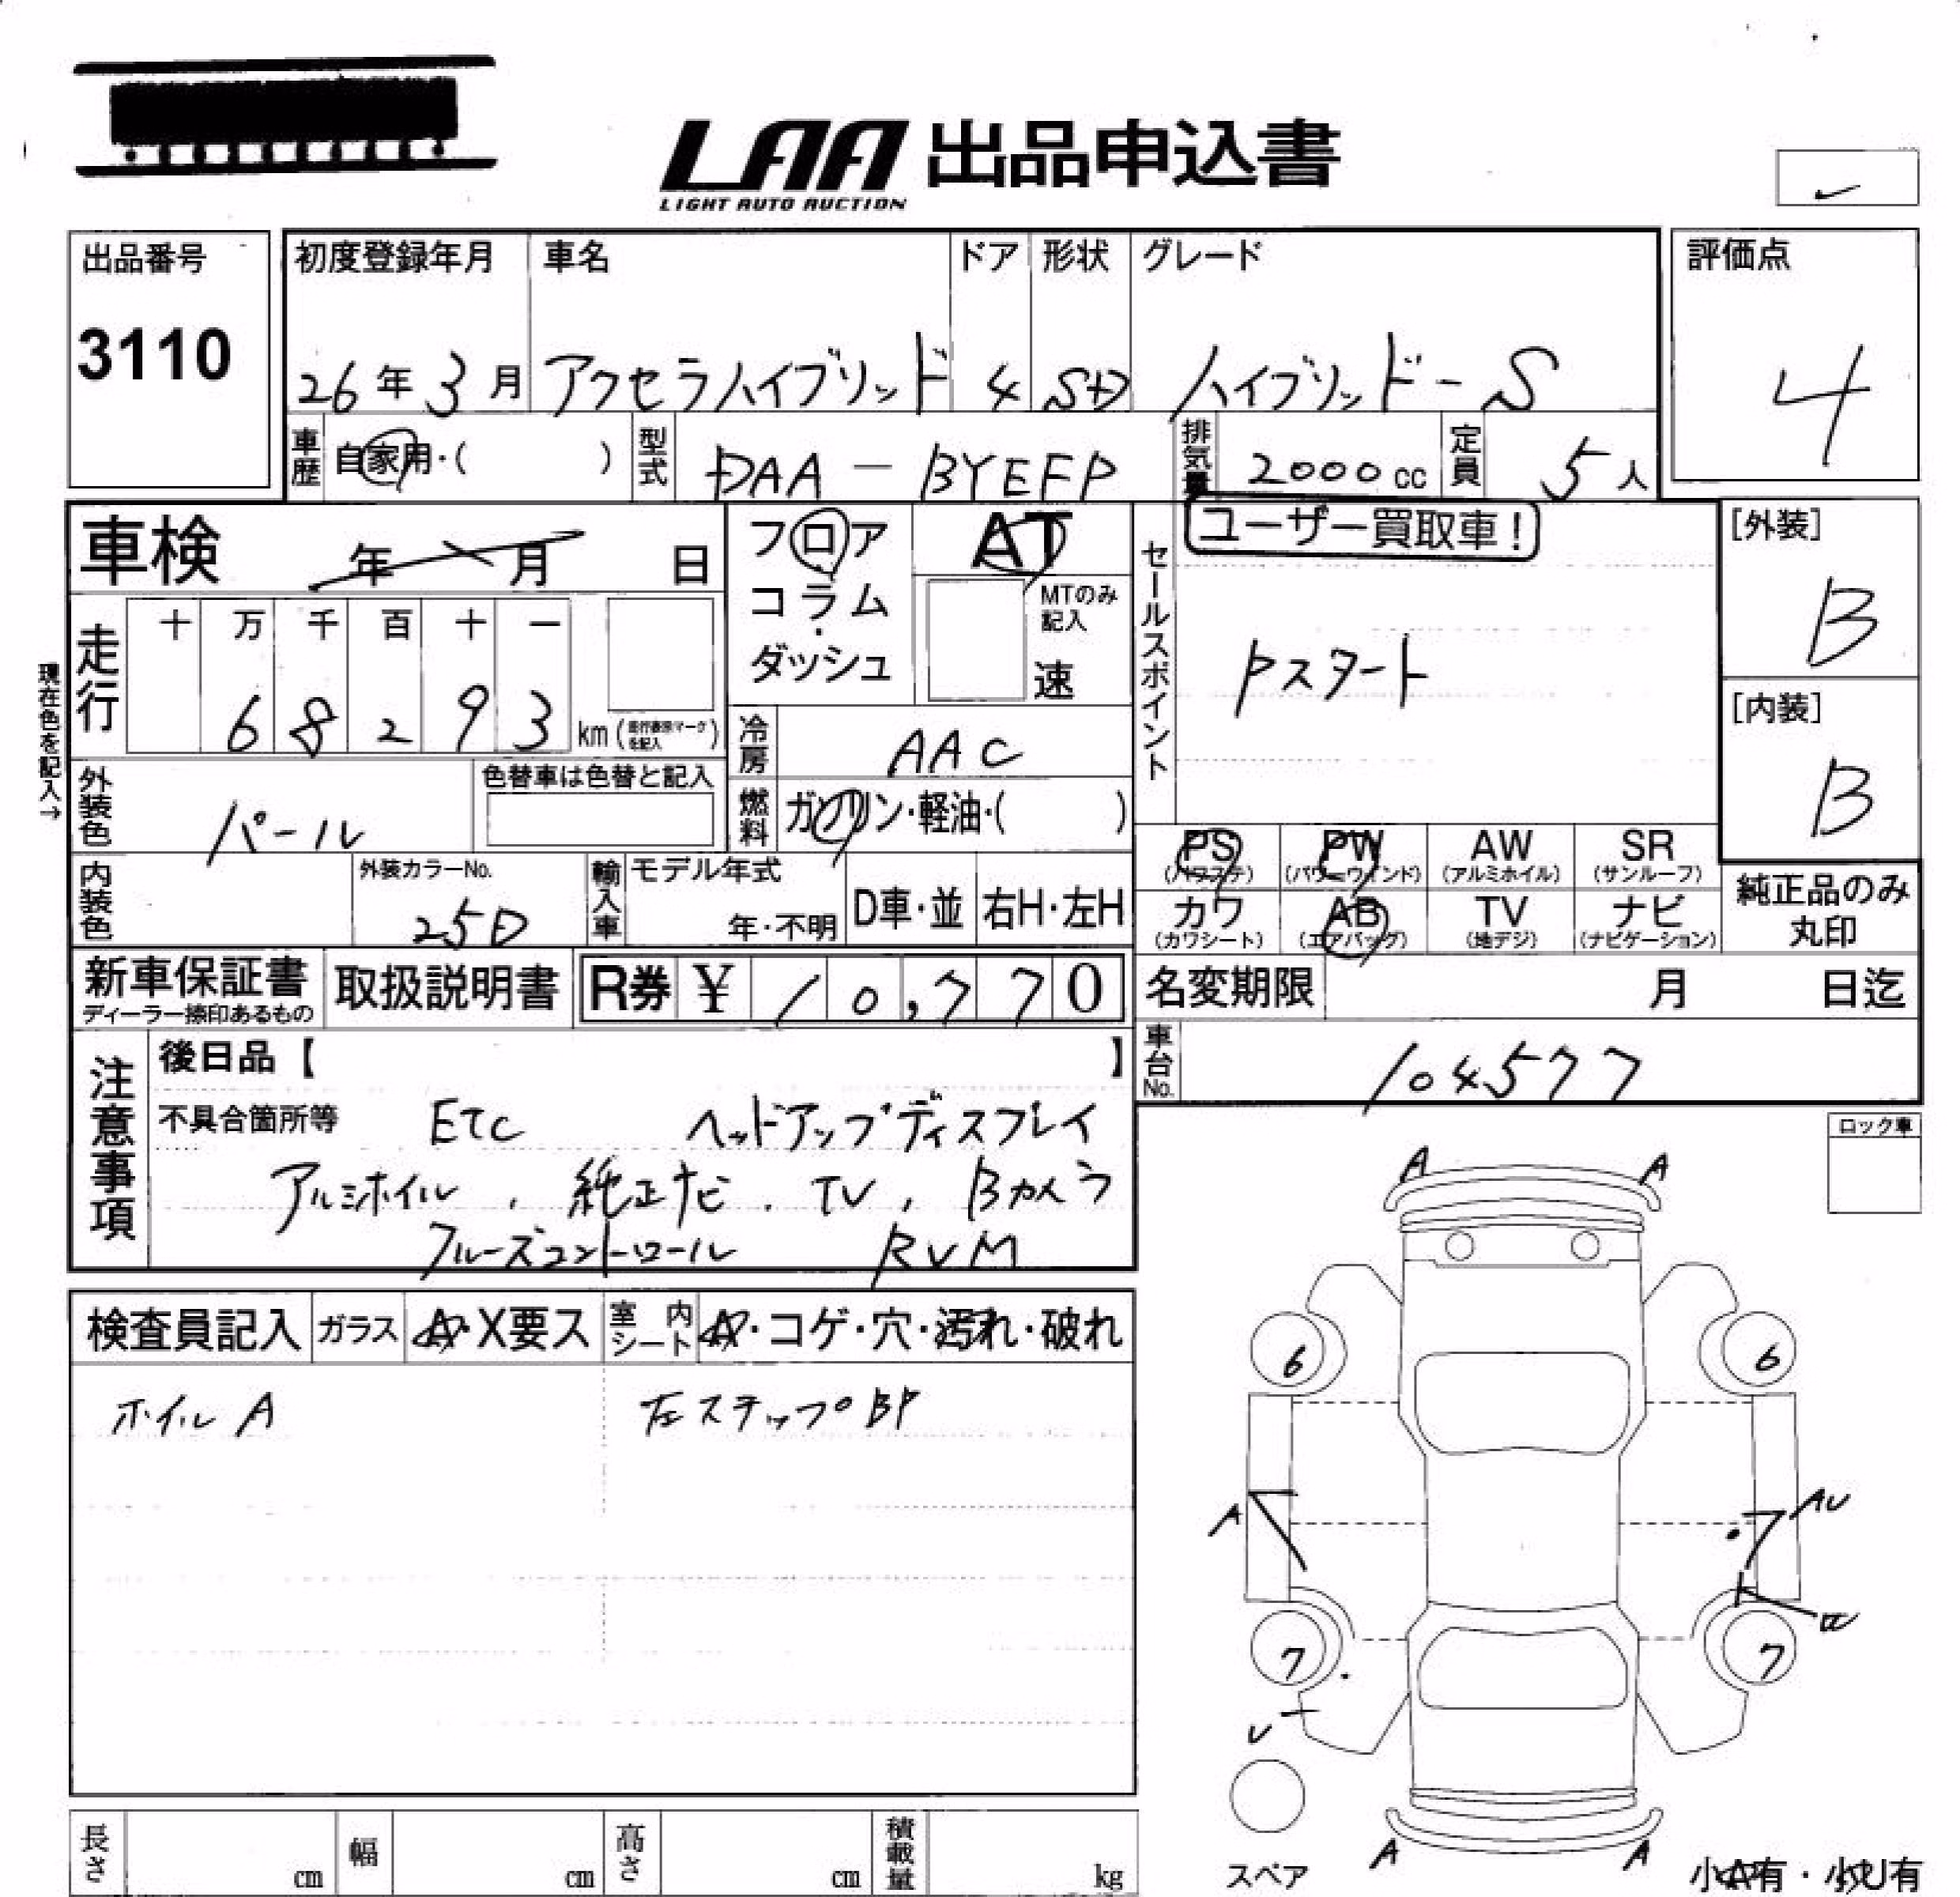 LAA 出品申込書
LIGHT AUTO AUCTION
出品番号
3110
初度登録年月
26年3月
車名
アクセラハイブリッド
ドア
4
形状
SD
グレード
ハイブリッド-S
評価点
4
車歴
自家用・( )
型式
DAA-BYEFP
排気量
2000cc
定員
5人
車検 年 月 日
フロア
コラム
・
ダッシュ
AT
MTのみ
記入
速
セールスポイント
ユーザー買取車!
Pスタート
[外装]
B
[内装]
B
現在色を記入→
走行
十 万 千 百 十 一
6 8 2 9 3
km( )
冷房
AAC
燃料
ガソリン・軽油・( )
外装色
パール
色替車は色替と記入
内装色
外装カラーNo.
25D
輸入車
モデル年式
年・不明
D車・並
右H・左H
PS
(パワステ)
PW
(パワーウインド)
AW
(アルミホイル)
SR
(サンルーフ)
カワ
(カワシート)
AB
(エアバッグ)
TV
(地デジ)
ナビ
(ナビゲーション)
純正品のみ
丸印
新車保証書
ディーラー捺印あるもの
取扱説明書
R券 ¥10,770
名変期限 月 日迄
車台No.
104577
注意事項
後日品【 】
不具合箇所等 ETC ヘッドアップディスプレイ
アルミホイル,純正ナビ.TV,Bカメラ
クルーズコントロール RVM
ロック車
検査員記入
ガラス A・X要ス
室内シート A・コゲ・穴・汚れ・破れ
ホイルA 左ステップBP
A A
6 6
A AU
7 7
U
A A
スペア
小A有・小U有
長さ cm
幅 cm
高さ cm
積載量 kg